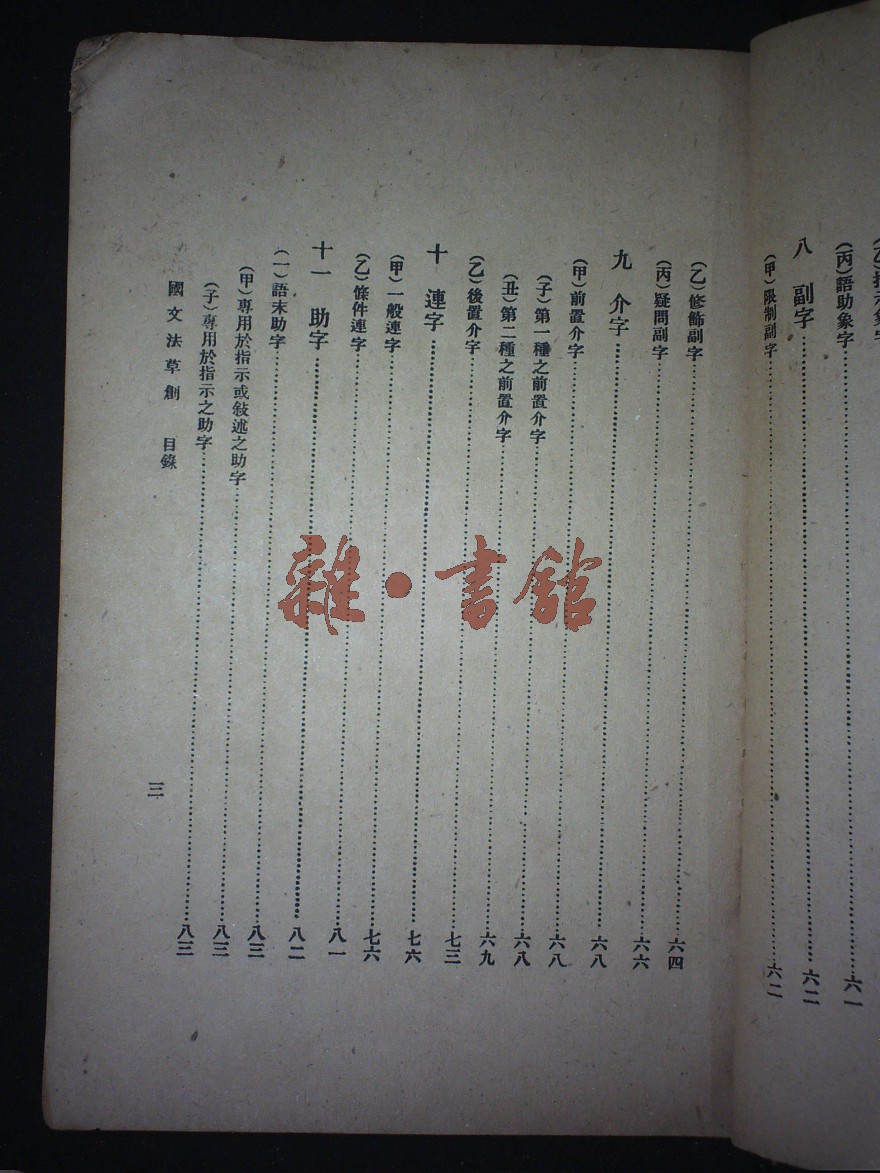 (丙)語助象字……六一
八 副字……六二
(甲)限制副字……六二
(乙)修飾副字……六四
(丙)疑問副字……六六
九 介字……六八
(甲)前置介字……六八
(子)第一種之前置介字……六八
(丑)第二種之前置介字……六九
(乙)後置介字……七三
十 連字……七六
(甲)一般連字……七六
(乙)條件連字……八一
十一 助字……八二
(一)語末助字……八三
(甲)專用於指示或敍述之助字……八三
(子)專用於指示之助字……八三
國文法草創 目錄
三
雜·書館